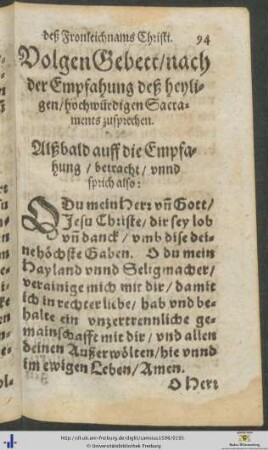 deß Fronleichnams Christi. 94
Volgen Gebett / nach
der Empfahung deß heyli-
gen / hochwürdigen Sacra-
ments zusprechen.
Alßbald auff die Empfa-
hung / betracht / vnnd
sprich also:
O Du mein Herr vñ Gott /
Jesu Christe / dir sey lob
vñ danck / vmb dise dei-
ne höchste Gaben. O du mein
Hayland vnnd Seligmacher /
verainige mich mit dir / damit
ich in rechter liebe / hab vnd be-
halte ein vnzertrennliche ge-
mainschafft mit dir / vnd allen
deinen Außerwölten / hie vnnd
im ewigen Leben / Amen.
O Herr
http://dl.ub.uni-freiburg.de/diglit/canisius1596/0195
© Universitätsbibliothek Freiburg
Baden-Württemberg